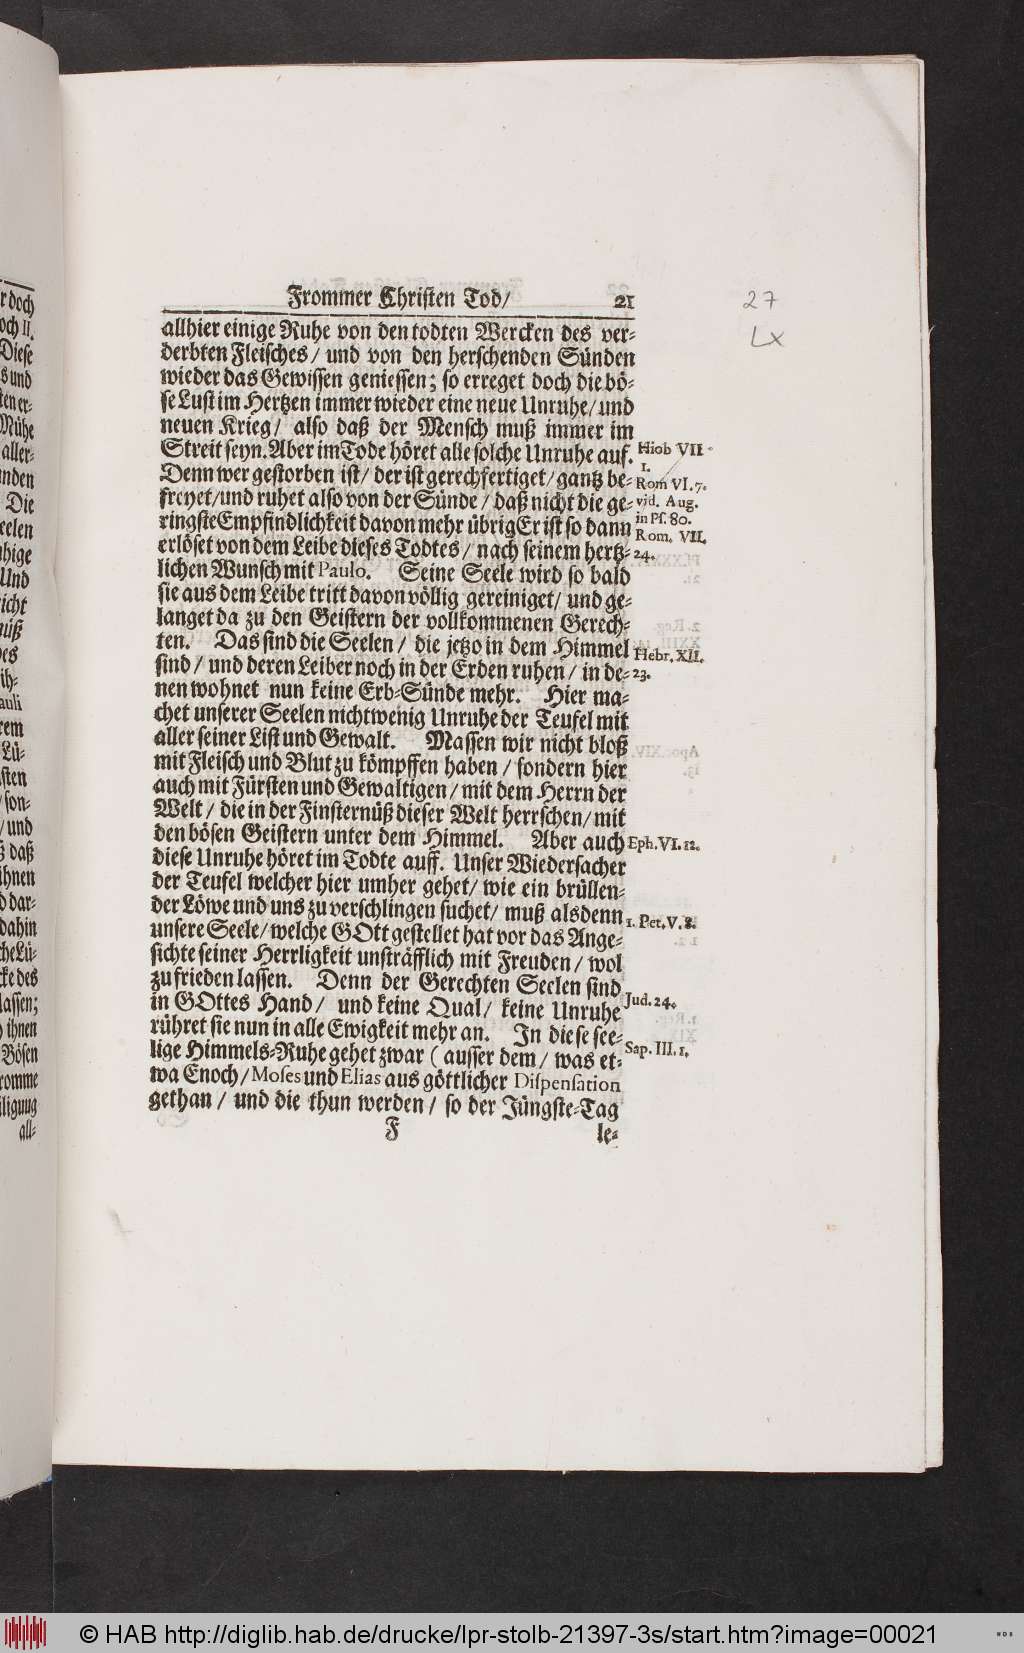 Frommer Christen Tod/ 21
27
Lx
allhier einige Ruhe von den todten Wercken des ver-
derbten Fleisches/ und von den herschenden Sünden
wieder das Gewissen geniessen; so erreget doch die bö-
se Lust im Hertzen immer wieder eine neue Unruhe/ und
neuen Krieg/ also daß der Mensch muß immer im
Streit seyn. Aber im Tode höret alle solche Unruhe auf.
Denn wer gestorben ist/ der ist gerechfertiget/ gantz be-
freyet/ und ruhet also von der Sünde/ daß nicht die ge-
ringste Empfindlichkeit davon mehr übrig Er ist so dann
erlöset von dem Leibe dieses Todtes/ nach seinem hertz-
lichen Wunsch mit Paulo. Seine Seele wird so bald
sie aus dem Leibe tritt davon völlig gereiniget/ und ge-
langet da zu den Geistern der vollkommenen Gerech-
ten. Das sind die Seelen/ die jetzo in dem Himmel
sind/ und deren Leiber noch in der Erden ruhen/ in de-
nen wohnet nun keine Erb-Sünde mehr. Hier ma-
chet unserer Seelen nicht wenig Unruhe der Teufel mit
aller seiner List und Gewalt. Massen wir nicht bloß
mit Fleisch und Blut zu kömpffen haben/ sondern hier
auch mit Fürsten und Gewaltigen/ mit dem Herrn der
Welt/ die in der Finsternüß dieser Welt herrschen/ mit
den bösen Geistern unter dem Himmel. Aber auch
diese Unruhe höret im Todte auff. Unser Wiedersacher
der Teufel welcher hier umher gehet/ wie ein brüllen-
der Löwe und uns zu verschlingen suchet/ muß alsdenn
unsere Seele/ welche GOtt gestellet hat vor das Ange-
sichte seiner Herrligkeit unsträfflich mit Freuden/ wol
zu frieden lassen. Denn der Gerechten Seelen sind
in GOttes Hand/ und keine Qual/ keine Unruhe
rühret sie nun in alle Ewigkeit mehr an. In diese see-
lige Himmels-Ruhe gehet zwar (ausser dem/ was et-
wa Enoch/ Moses und Elias aus göttlicher Dispensation
gethan/ und die thun werden/ so der Jüngste-Tag
F le-
Hiob VII
1.
Rom VI. 7.
vid. Aug.
in Ps. 80.
Rom. VII.
24.
Hebr. XII.
23.
Eph. VI. 12.
1. Pet. V. 8.
Jud. 24.
Sap. III. 1.
r doch
och II.
Diese
s und
ten er-
Mühe
aller-
nden
Die
eelen
hige
Und
icht
nüß
des
ih-
auli
rem
Lü-
sten
/ son-
/ und
ß daß
ihnen
d dar-
dahin
che Lü-
cke des
lassen;
ihnen
Bösen
romme
iligung
all-
© HAB http://diglib.hab.de/drucke/lpr-stolb-21397-3s/start.htm?image=00021